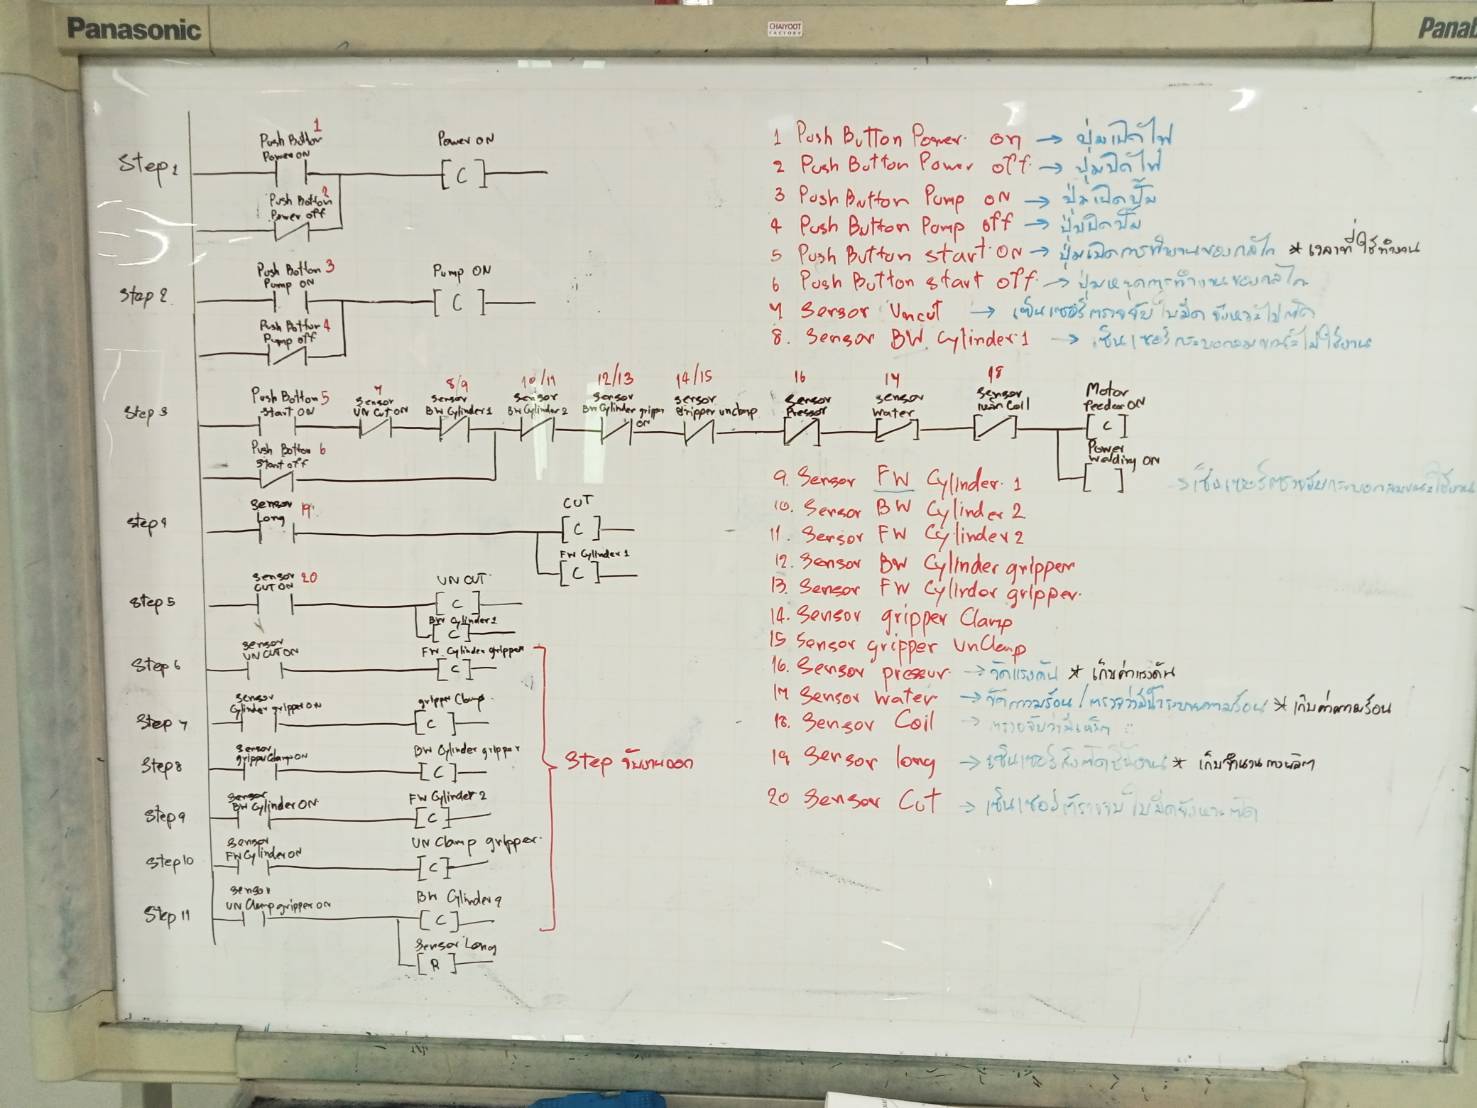 Panasonic
CHAIYOOT
FACTORY
Step 1
Push Button 1
Power ON
Power ON
[C]
Push Botton 2
Power off
Step 2
Push Botton 3
Pump ON
Pump ON
[C]
Push Botton 4
Pump off
Step 3
Push Bottons 5
Start ON
7
Sensor
UN Cut ON
8/9
Sensor
BW Cylinder 1
10/11
Sensor
BW Cylinder 2
12/13
Sensor
BW Cylinder gripper
ON
14/15
Sensor
gripper unclamp
16
Sensor
17
Sensor
Water
18
Sensor
Coil
Motor
Feeder ON
[C]
Power
Welding ON
[ ]
Push Botton 6
Start off
Step 4
Sensor 19
Long
CUT
[C]
FW Cylinder 1
[C]
Step 5
Sensor 20
CUT ON
UN CUT
[C]
[C]
Step 6
Sensor
UN CUT ON
FW Cylinder gripper
[C]
Step 7
Sensor
Cylinder gripper ON
gripper Clamp
[C]
Step 8
Sensor
gripper Clamp ON
BW Cylinder gripper
[C]
Step 9
Sensor
BW Cylinder ON
FW Cylinder 2
[C]
Step 10
Sensor
FW Cylinder ON
UN Clamp gripper
[C]
Step 11
Sensor
UN Clamp gripper ON
BW Cylinder
[C]
Sensor Long
[R]
Step จับงานออก
1 Push Button Power on → ปุ่มเปิดไฟ
2 Push Button Power off → ปุ่มปิดไฟ
3 Push Button Pump ON → ปุ่มเปิดปั๊ม
4 Push Button Pump off → ปุ่มปิดปั๊ม
5 Push Button start ON → ปุ่มเปิดการทำงานของกลไก * เวลาที่ใช้ทำงาน
6 Push Button start off → ปุ่มหยุดการทำงานของกลไก
7 Sensor Uncut → เซ็นเซอร์ตรวจจับใบมีดจังหวะไม่ตัด
8. Sensor BW Cylinder 1 → เซ็นเซอร์กระบอกลมขณะไม่ใช้งาน
9. Sensor FW Cylinder 1 → เซ็นเซอร์ตรวจจับกระบอกลมขณะใช้งาน
10. Sensor BW Cylinder 2
11. Sensor FW Cylinder 2
12. Sensor BW Cylinder gripper
13. Sensor FW Cylinder gripper
14. Sensor gripper Clamp
15 Sensor gripper unClamp
16. Sensor pressur → วัดแรงดัน * เก็บค่าแรงดัน
17 Sensor water → วัดความร้อน / ตรวจว่ามีน้ำระบายความร้อน * เก็บค่าความร้อน
18. Sensor Coil → ตรวจจับว่ามีเหล็ก
19 Sensor long → * เก็บจำนวน
20 Sensor Cut → เซ็นเซอร์ตรวจจับใบมีดจังหวะตัด